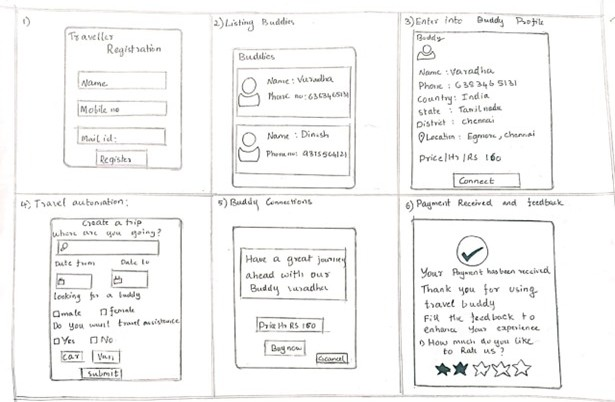 1)
Traveller
Registration
Name
Mobile no
Mail id:
Register
2) Listing Buddies
Buddies
Name: Varadha
Phone no: 6353465131
Name : Dinish
Phone no: 9315564121
3) Enter into Buddy Profile
Buddy
Name : Varadha
Phone : 635346 5131
Country: India
State : Tamilnadu
District : chennai
Location : Egmore, chennai
Price/Hr /RS 160
Connect
4) Travel automation:
Create a trip
Where are you going?
Date from Date to
Looking for a buddy
male female
Do you want travel assistance
Yes No
Car Van
Submit
5) Buddy Connections
Have a great journey
ahead with our
Buddy varadha
Price Hr RS 160
Pay now
Cancel
6) Payment Received and feedback
Your Payment has been received
Thank you for using
travel buddy
Fill the feedback to
enhance your experience
1) How much do you like
to Rate us ?